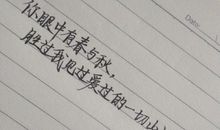 Date
你眼中有春与秋，
胜过我见过爱过的一切山